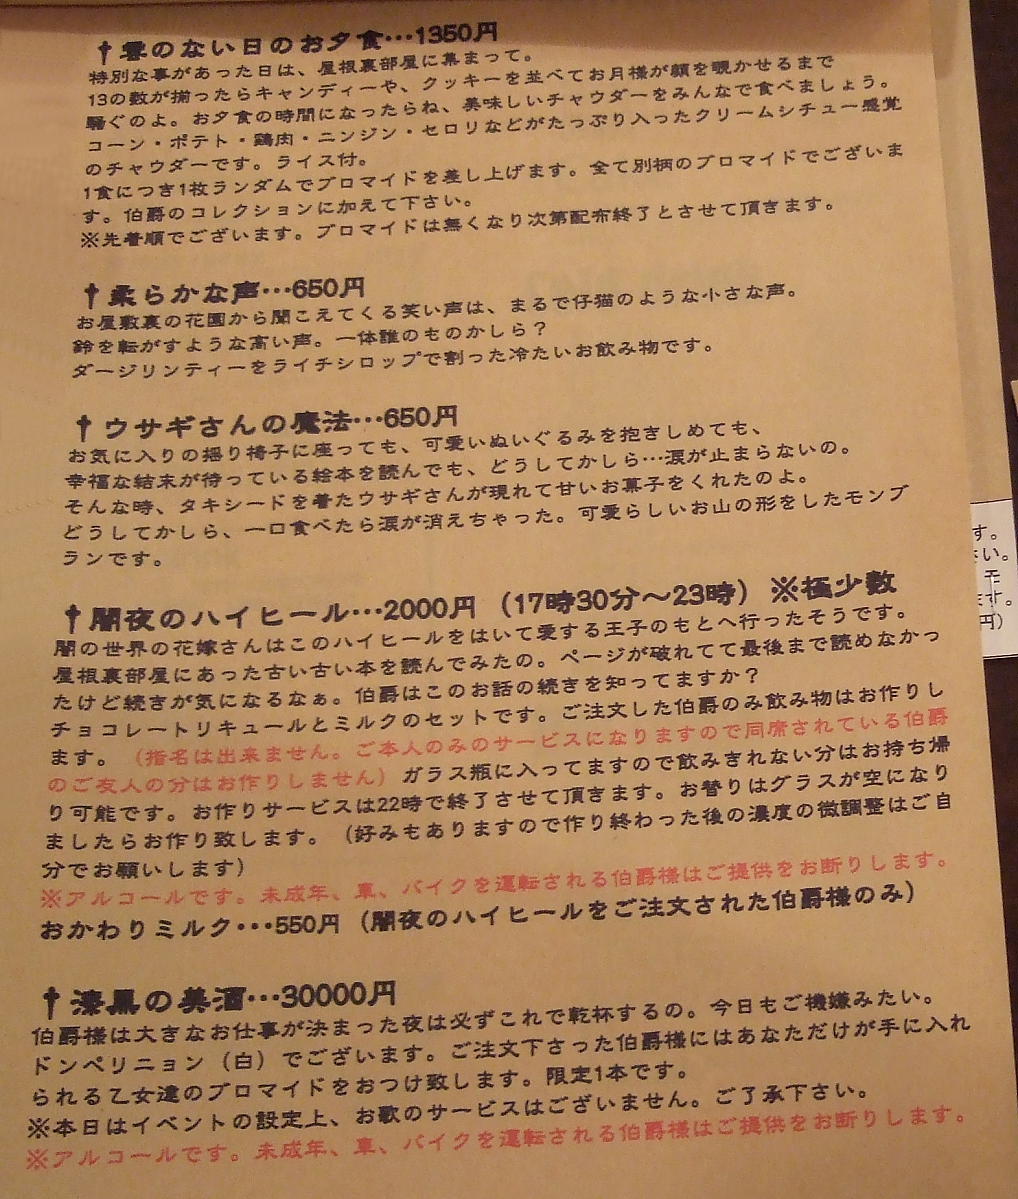 ✝雲のない日のお夕食…1350円
特別な事があった日は、屋根裏部屋に集まって。
13の数が揃ったらキャンディーや、クッキーを並べてお月様が顔を覗かせるまで
騒ぐのよ。お夕食の時間になったらね、美味しいチャウダーをみんなで食べましょう。
コーン・ポテト・鶏肉・ニンジン・セロリなどがたっぷり入ったクリームシチュー感覚
のチャウダーです。ライス付。
1食につき1枚ランダムでブロマイドを差し上げます。全て別柄のブロマイドでございま
す。伯爵のコレクションに加えて下さい。
※先着順でございます。ブロマイドは無くなり次第配布終了とさせて頂きます。
✝柔らかな声…650円
お屋敷裏の花園から聞こえてくる笑い声は、まるで仔猫のような小さな声。
鈴を転がすような高い声。一体誰のものかしら？
ダージリンティーをライチシロップで割った冷たいお飲み物です。
✝ウサギさんの魔法…650円
お気に入りの揺り椅子に座っても、可愛いぬいぐるみを抱きしめても、
幸福な結末が待っている絵本を読んでも、どうしてかしら…涙が止まらないの。
そんな時、タキシードを着たウサギさんが現れて甘いお菓子をくれたのよ。
どうしてかしら、一口食べたら涙が消えちゃった。可愛らしいお山の形をしたモンブ
ランです。
✝闇夜のハイヒール…2000円（17時30分～23時）※極少数
闇の世界の花嫁さんはこのハイヒールをはいて愛する王子のもとへ行ったそうです。
屋根裏部屋にあった古い古い本を読んでみたの。ページが破れてて最後まで読めなかっ
たけど続きが気になるなぁ。伯爵はこのお話の続きを知ってますか？
チョコレートリキュールとミルクのセットです。ご注文した伯爵のみ飲み物はお作りし
ます。（指名は出来ません。ご本人のみのサービスになりますので同席されている伯爵
のご友人の分はお作りしません）ガラス瓶に入ってますので飲みきれない分はお持ち帰
り可能です。お作りサービスは22時で終了させて頂きます。お替りはグラスが空になり
ましたらお作り致します。（好みもありますので作り終わった後の濃度の微調整はご自
分でお願いします）
※アルコールです。未成年、車、バイクを運転される伯爵様はご提供をお断りします。
おかわりミルク…550円（闇夜のハイヒールをご注文された伯爵様のみ）
✝漆黒の美酒…30000円
伯爵様は大きなお仕事が決まった夜は必ずこれで乾杯するの。今日もご機嫌みたい。
ドンペリニョン（白）でございます。ご注文下さった伯爵様にはあなただけが手に入れ
られる乙女達のブロマイドをおつけ致します。限定1本です。
※本日はイベントの設定上、お歌のサービスはございません。ご了承下さい。
※アルコールです。未成年、車、バイクを運転される伯爵様はご提供をお断りします。
す。
い。
ます。
円）